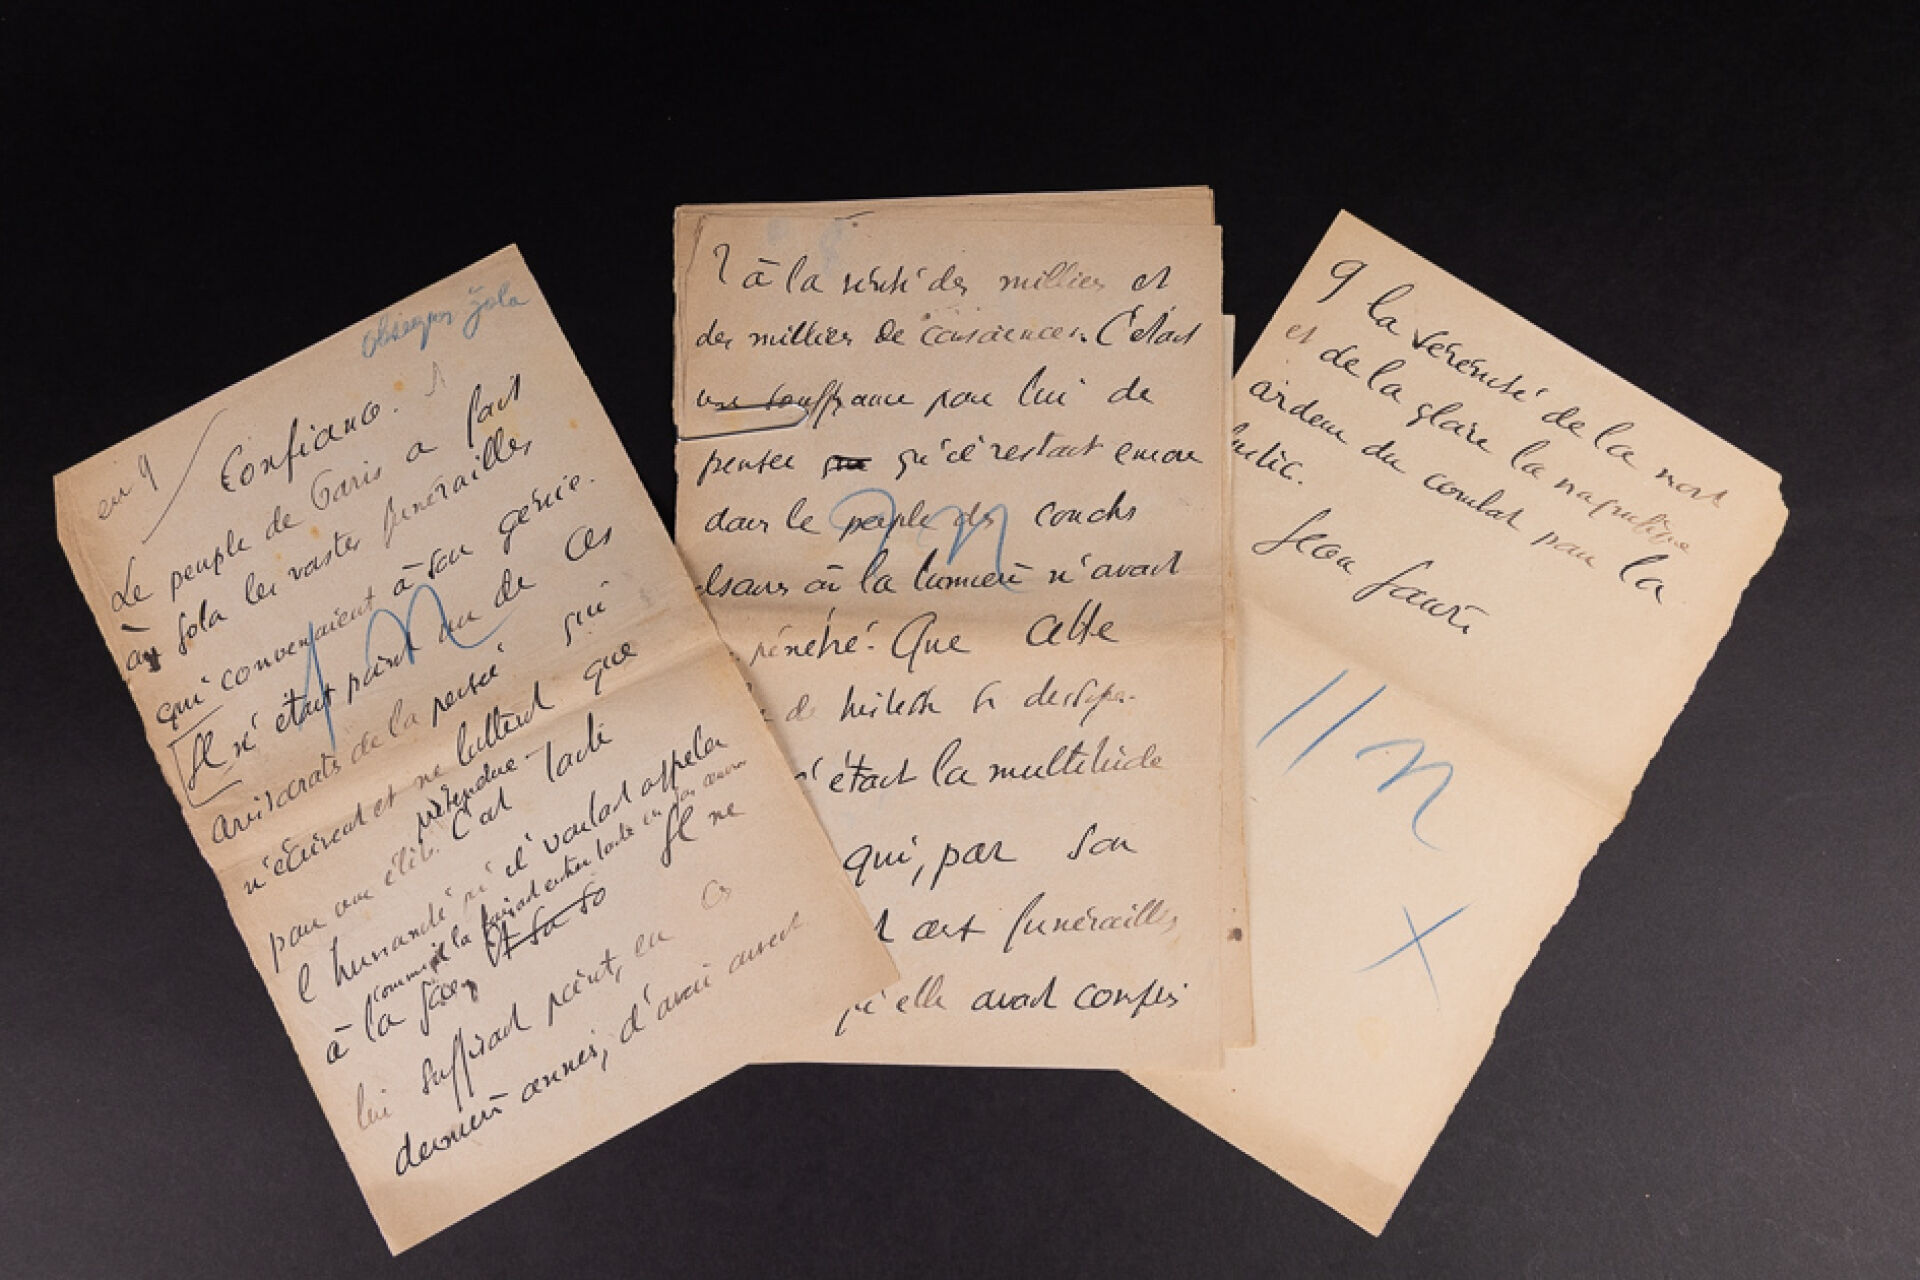 obsèques Zola
en 9
Confiance.
Le peuple de Paris a fait
à Zola les vastes funérailles
qui convenaient à son génie.
Il n'était point un de ces
aristocrats de la pensée qui
n'écrivent et ne luttent que
pour une prétendue élite. C'est toute
l'humanité qu'il voulait appeler
à la
Et sa so Il ne
lui suffisait point, en ces
dernières années, d'avoir ouvert
1 n
2 à la vérité des milliers et
des milliers de consciences. C'était
une souffrance pour lui de
penser qu'il restait encore
dans le peuple des couches
où la lumière n'avait
pénétré. Que cette
de
n'était la multitude
qui, par son
funérailles
qu'elle avait compris
n
9 la sérénité de la mort
et de la gloire la magnifique
ardeur du combat pour la
justice.
Jean Jaurès
// n
X